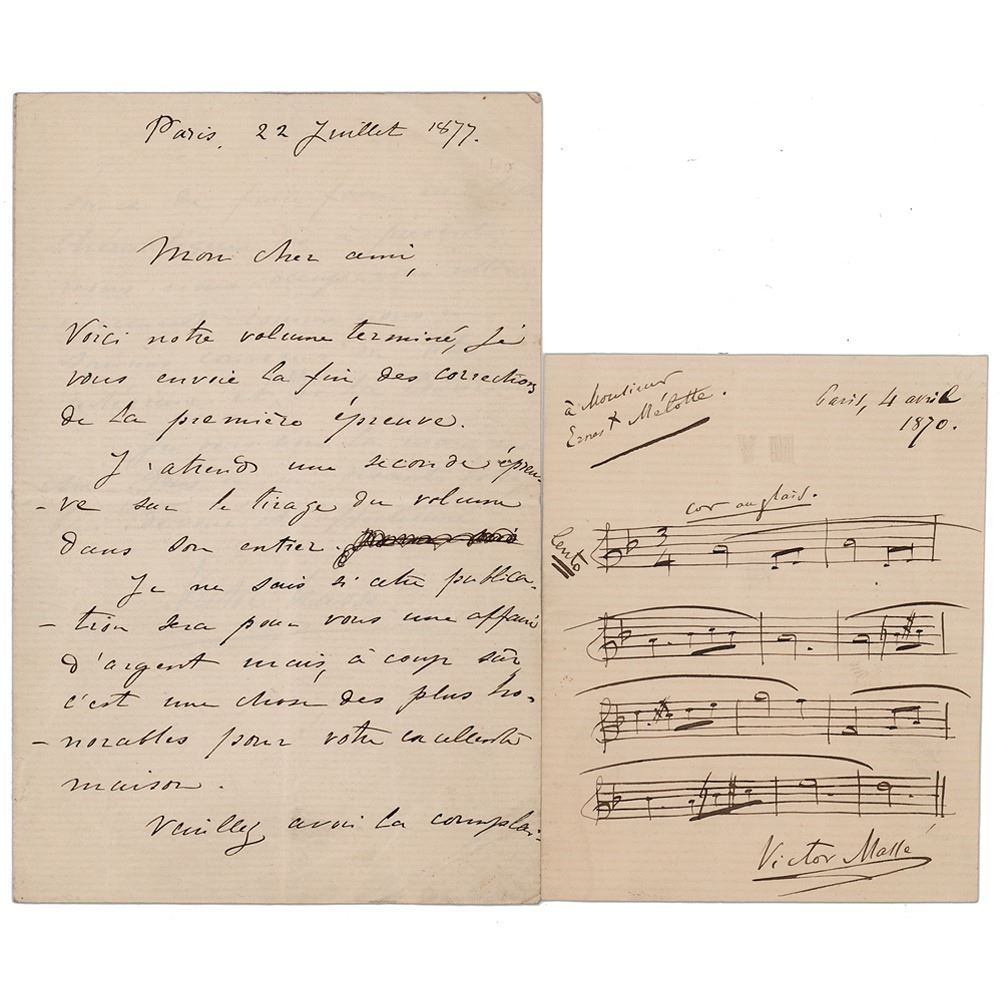 Paris, 22 Juillet 1877.
Mon cher ami,
Voici notre volume terminé, Je
vous envoie la fin des corrections
de la première épreuve.
J'attends une seconde épreu-
-ve sur le tirage du volume
dans son entier.
Je ne sais si cette publica-
-tion sera pour vous une affaire
d'argent mais, à coup sûr,
c'est une chose des plus ho-
-norables pour votre excellente
maison.
Veuillez avoir la complai-
à Monsieur
Ernest Mélotte.
Paris, 4 avril
1870.
cor anglais.
Lento
3
4
Victor Massé